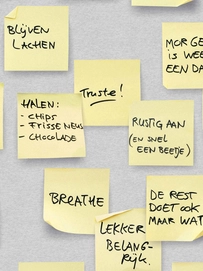 BLIJVEN
LACHEN
MORGE
IS WEE
EEN DA
Truste!
HALEN:
- CHIPS
- FRISSE NEUS
- CHOCOLADE
RUSTIG AAN
(EN SNEL
EEN BEETJE)
BREATHE
DE REST
DOET OOK
MAAR WAT
LEKKER
BELANG-
RIJK